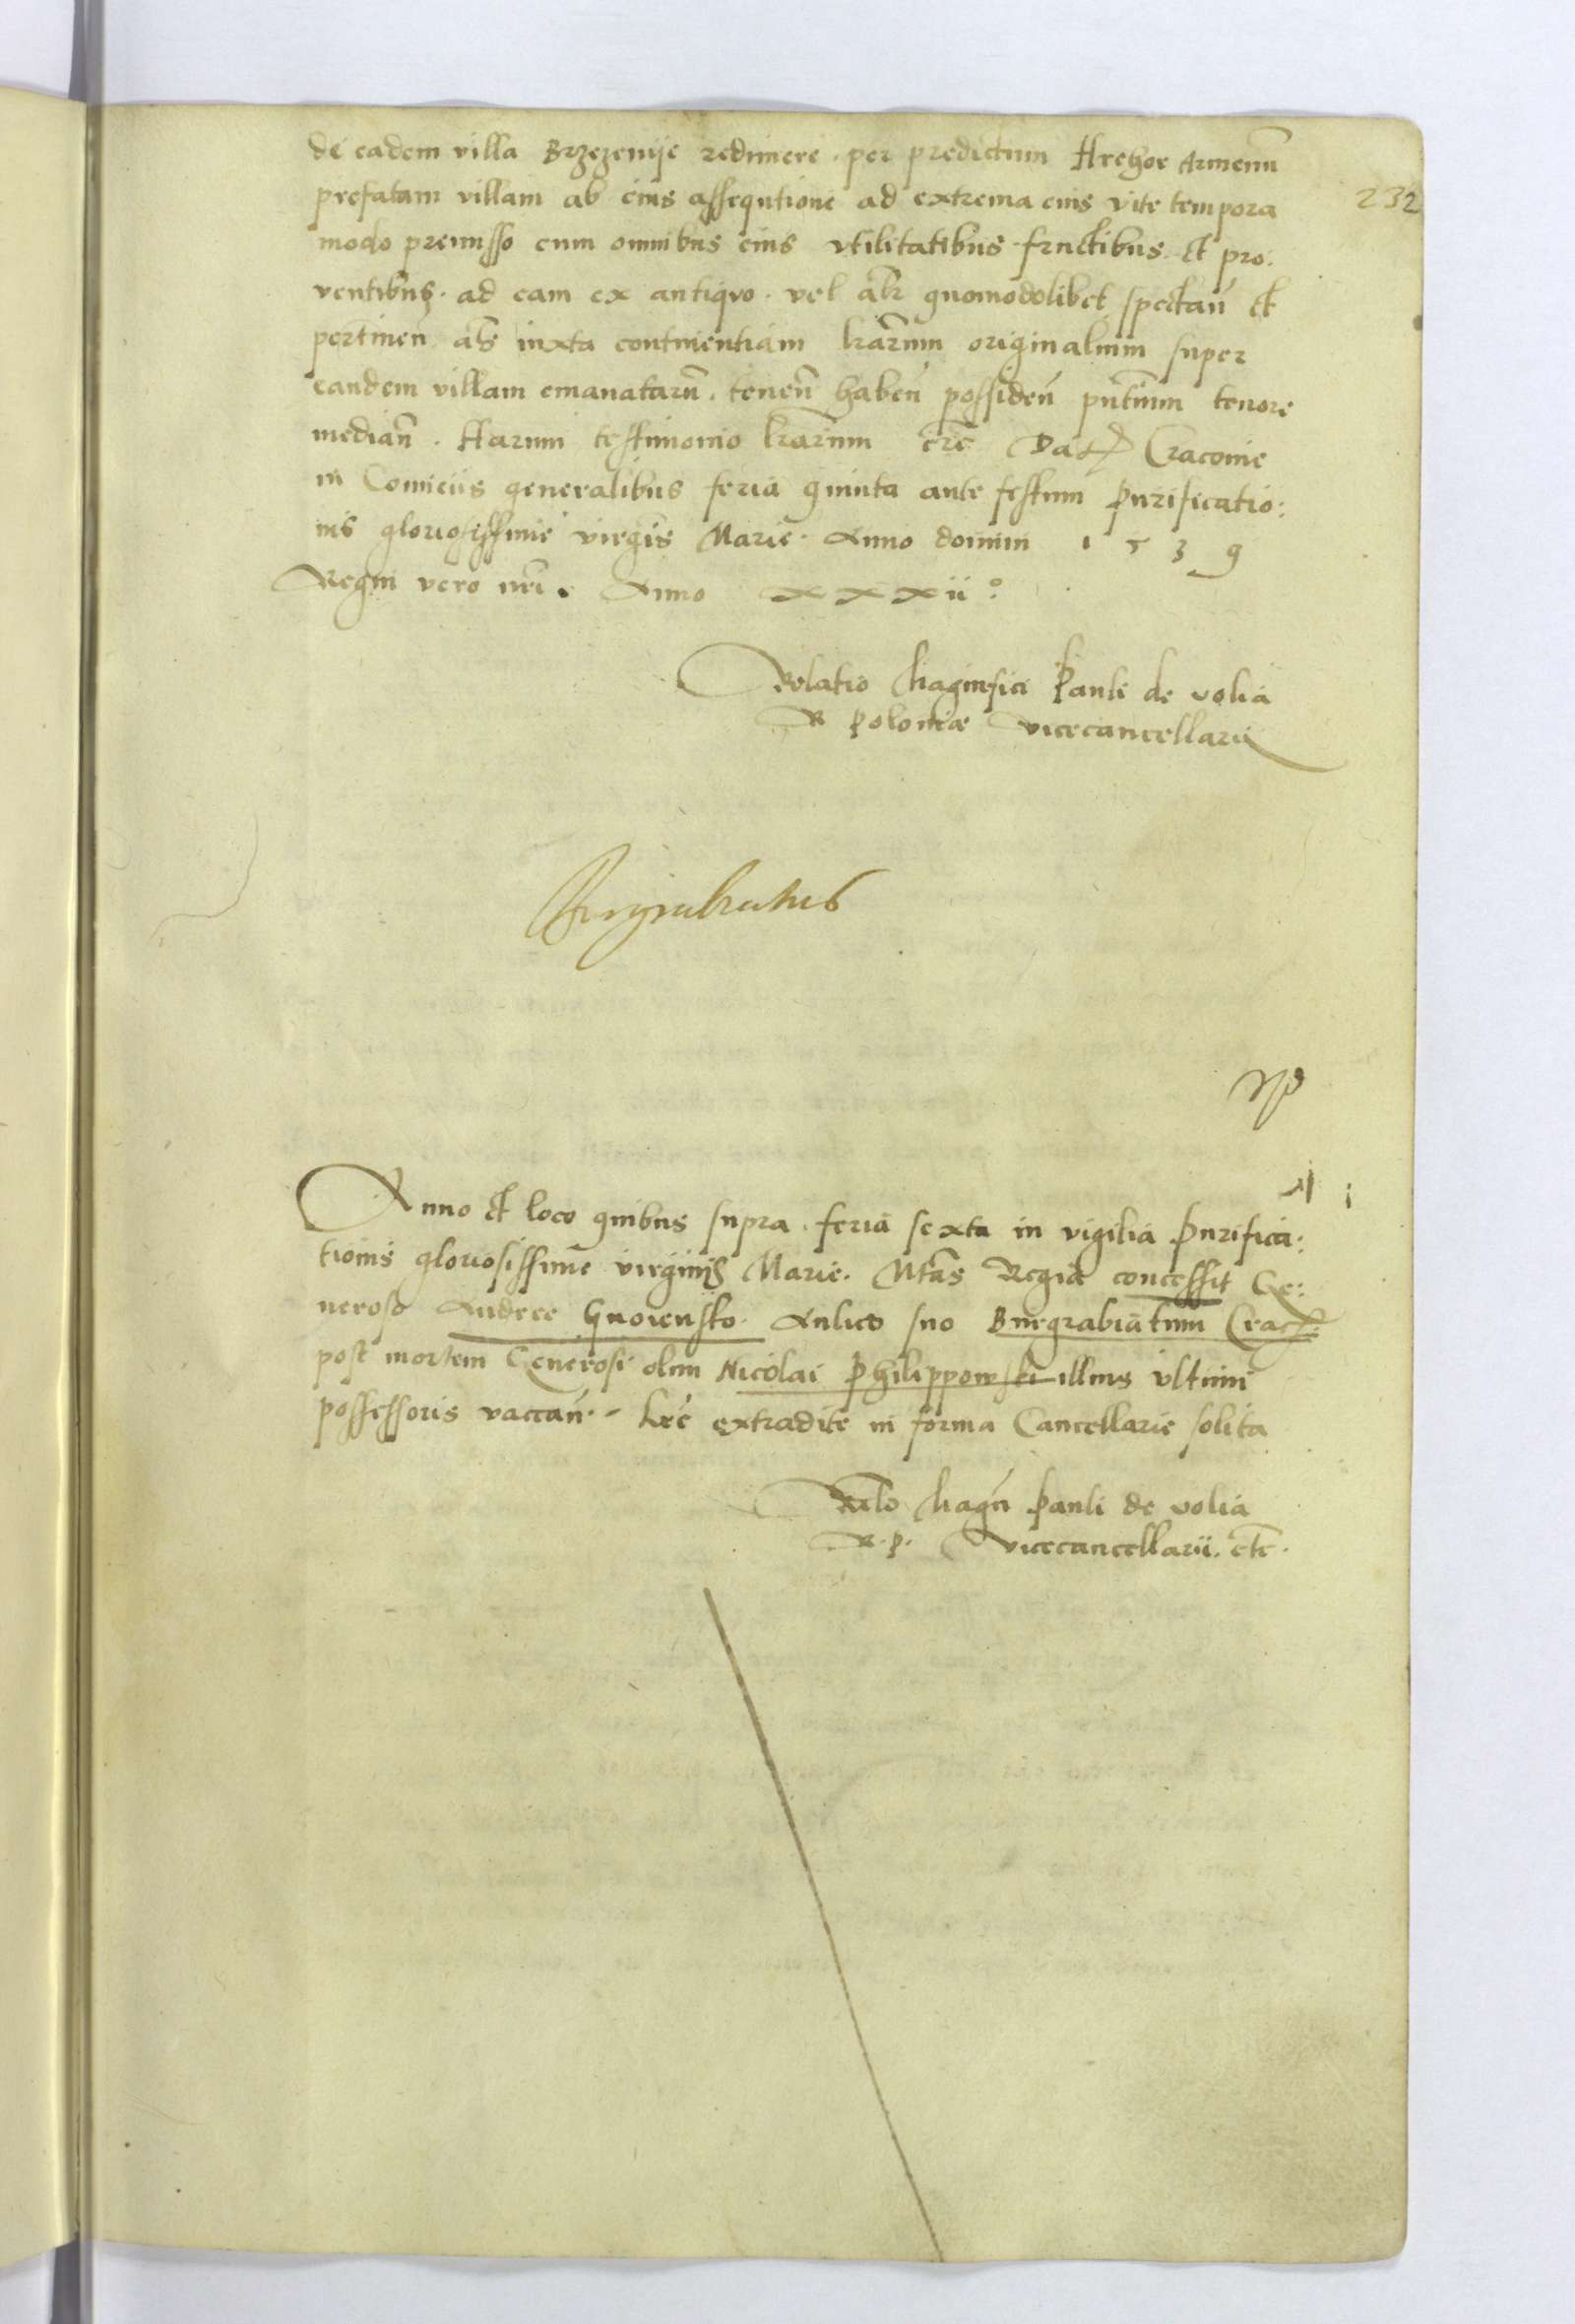 de eadem villa Brzezenije redimere . per predictum Hrehor Armenū
232
prefatam villam ab eius assequtione ad extrema eius vite tempora
modo premisso cum omnibus eius vtilitatibus . fructibus . et pro:
ventibus . ad eam ex antiquo . vel alr̄ quomodolibet spectan̄ et
pertinen̄ als̄ iuxta continentiam lrārum originalium super
eandem villam emanatarū . tenen̄ haben̄ possiden̄ pn̄tium tenore
median̄ . Harum testimonio lrārum etc̄ Dat Cracovie
in Comiciis generalibus feria quinta ante festum purificatio:
nis gloriosissime virgīs Marie . Anno domini 1539
Regni vero nr̄i . Anno xxxii°:
Relatio Magnifici Pauli de volia
R Poloniæ vicecancellarii
Anno et loco quibus supra . feria sexta in vigilia Purifica:
tionis gloriosissime virginis Marie . Mtas̄ Regia concessit Ge:
neroso Andree Gnoiensko . Aulico suo Burgrabiatum Crac:
post mortem Generosi olim Nicolai Philippowski illius ultimi
possessoris vaccan̄ . - Lrē extradite in forma Cancellarie solita
Relō Magn̄ Pauli de volia
R . P . vicecancellarii . etc̄ .